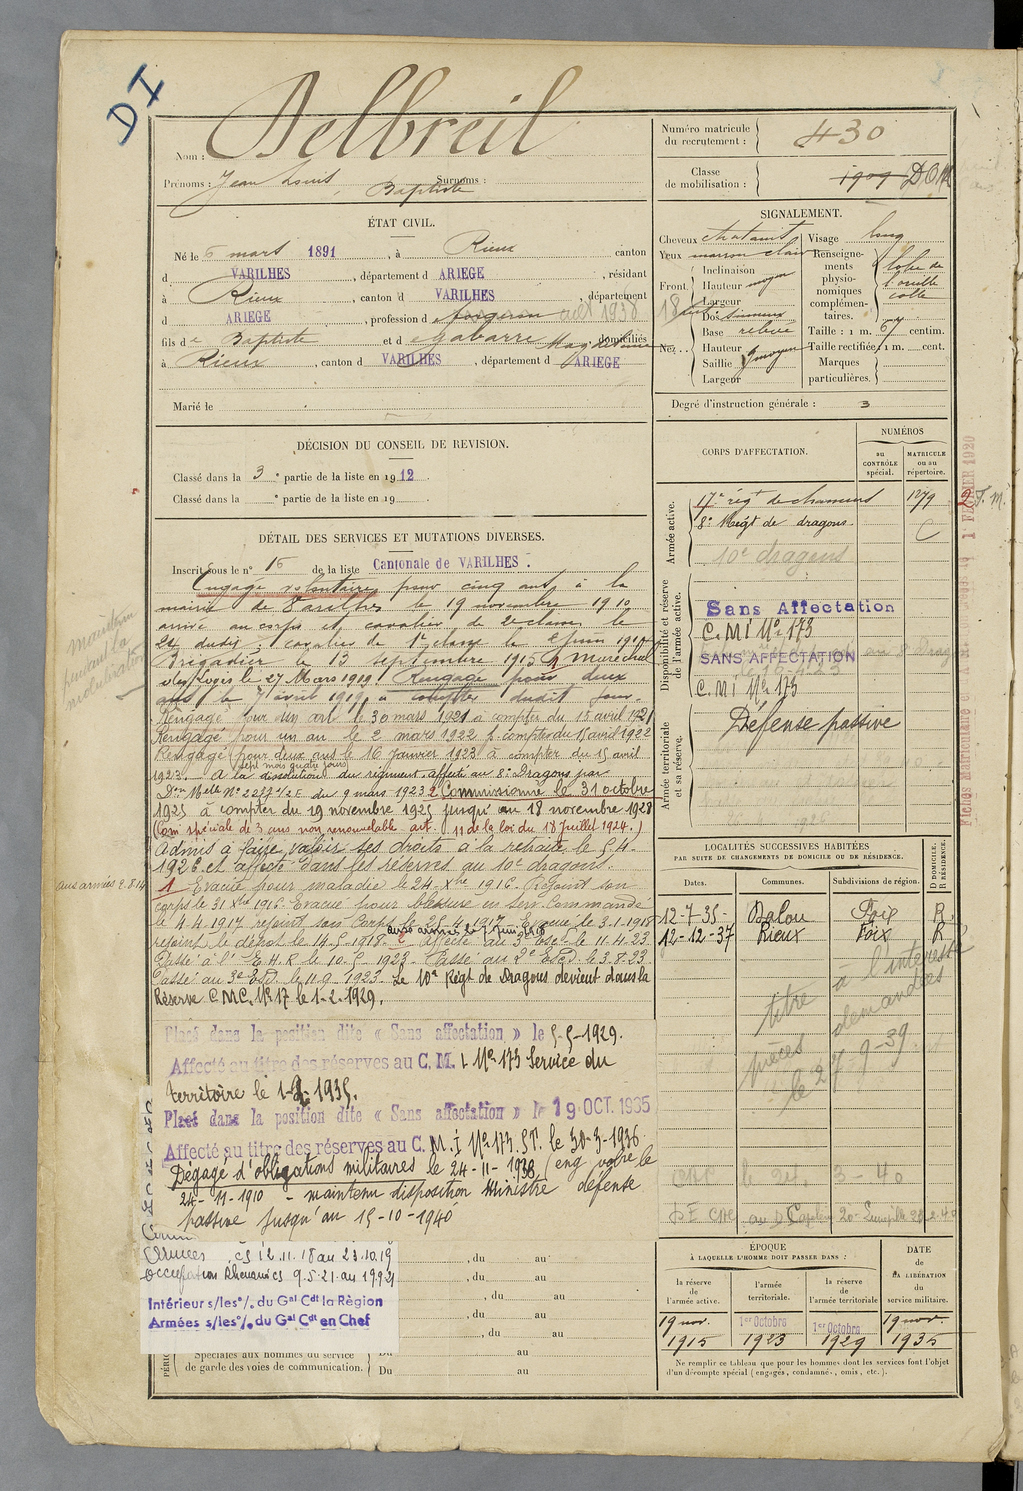 DI
Nom : Delbreil
Prénoms : Jean Louis Baptiste Surnoms :
Numéro matricule du recrutement : 430
Classe de mobilisation : 1909 DOM
ÉTAT CIVIL.
Né le 6 mars 1891, à Rieux canton
d VARILHES, département d ARIEGE, résidant
à Rieux, canton d VARILHES, département
d ARIEGE, profession de forgeron
fils de Baptiste et de Gabarre Magdeleine domiciliés
à Rieux, canton d VARILHES, département d ARIEGE
Marié le
SIGNALEMENT.
Cheveux chatains
Yeux marron clair
Front Inclinaison
Hauteur moyen
Largeur
Nez Dos sinueux
Base relevé
Hauteur
Saillie moyen
Largeur
Visage long
Renseignements physionomiques complémentaires. lobe de l'oreille collé
Taille : 1 m. 67 centim.
Taille rectifiée : 1 m. cent.
Marques particulières.
Degré d'instruction générale : 3
DÉCISION DU CONSEIL DE REVISION.
Classé dans la 3e partie de la liste en 1912.
Classé dans la e partie de la liste en 19
CORPS D'AFFECTATION.
NUMÉROS
au CONTRÔLE spécial.
MATRICULE ou au répertoire.
Armée active.
17e régt de chasseurs 1279
8e Régt de dragons. C
10e dragons
Disponibilité et réserve de l'armée active.
Sans Affectation
C.M.I No 173
SANS AFFECTATION
C.M.I No 173
Armée territoriale et sa réserve.
Défense passive
1er FÉVRIER 1920
2 F.M.
DÉTAIL DES SERVICES ET MUTATIONS DIVERSES.
Inscrit sous le no 15 de la liste Cantonale de VARILHES.
Engagé volontaire pour cinq ans à la
mairie de Varilhes le 19 novembre 1910
arrivé au corps et cavalier de 2e classe le
24 dudit : cavalier de 1e classe le juin 1914
Brigadier le 13 septembre 1915 Maréchal
des Logis le 27 Mars 1919 Rengagé pour deux
ans le 7 avril 1919 à compter dudit jour.
Rengagé pour un an le 30 mars 1921 à compter du 15 avril 1921
Rengagé pour un an le 2 mars 1922 à compter du 15 avril 1922
Rengagé pour deux ans sept mois quatre jours le 16 Janvier 1923 à compter du 15 avril
1923. A la dissolution du régiment affecté au 8e Dragons par
Don Melle No 2287 1/2 E du 9 mars 1923 2 Commissionné le 31 octobre
1925 à compter du 19 novembre 1925 jusqu'au 18 novembre 1928
(Com spéciale de 3 ans non renouvelable art. 11 de la loi du 18 Juillet 1924.)
Admis à faire valoir ses droits à la retraite le 5.4.
1926 et affecté dans les réserves au 10e dragons.
aux armées 2.8.14
1 Evacué pour maladie le 24 Xbre 1916. Rejoint son
corps le 31 Xbre 1916. Evacué pour blessure en serv. commandé
le 4.4.1917 rejoint son Corps le 25.4.1917. Evacué le 3.1.1918
rejoint le dépôt le 14.5.1918. 2 affecté au 3e esc. le 11.4.23
Passé à l'E.H.R le 10.5.1923. Passé au 2e Esc. le 3.8.23
Passé au 3e Esc. le 11.9.1923. Le 10e Régt de Dragons devient dans la
Réserve C.M.C. No 17 le 1-2-1929.
Placé dans la position dite « Sans affectation » le 5-5-1929.
Affecté au titre des réserves au C.M.I No 173 Service du
territoire le 1-2-1935.
Placé dans la position dite « Sans affectation » le 19 OCT. 1935
Affecté au titre des réserves au C.M.I No 173. S.T. le 30-3-1936.
Dégagé d'obligations militaires le 24-11-1938 (eng volre le
24-11-1910 - maintenu disposition Ministre défense
passive jusqu'au 15-10-1940
Armées CS 12.11.18 au 23.10.19
Occupation Rhénanie CS 9.5.21 au 19.9.21
Intérieur s/les o/. du Gal Cdt la Région
Armées s/les o/. du Gal Cdt en Chef
, du au
, du au
, du au
, du au
, du au
Spéciales aux hommes du service
de garde des voies de communication.
Du au
Du au
LOCALITÉS SUCCESSIVES HABITÉES
PAR SUITE DE CHANGEMENTS DE DOMICILE OU DE RÉSIDENCE.
Dates. Communes. Subdivisions de région. D DOMICILE. R RÉSIDENCE.
12-7-35- Dalou Foix R.
12-12-37 Rieux Foix R
titre à l'intéressé
pièces demandées
le 27-9-39
ÉPOQUE
À LAQUELLE L'HOMME DOIT PASSER DANS :
la réserve de l'armée active.
l'armée territoriale.
la réserve de l'armée territoriale
DATE de LA LIBÉRATION du service militaire.
19 nov. 1915
1er Octobre 1923
1er Octobre 1929
19 nov. 1935
Ne remplir ce tableau que pour les hommes dont les services font l'objet
d'un décompte spécial (engagés, condamné., omis, etc.).